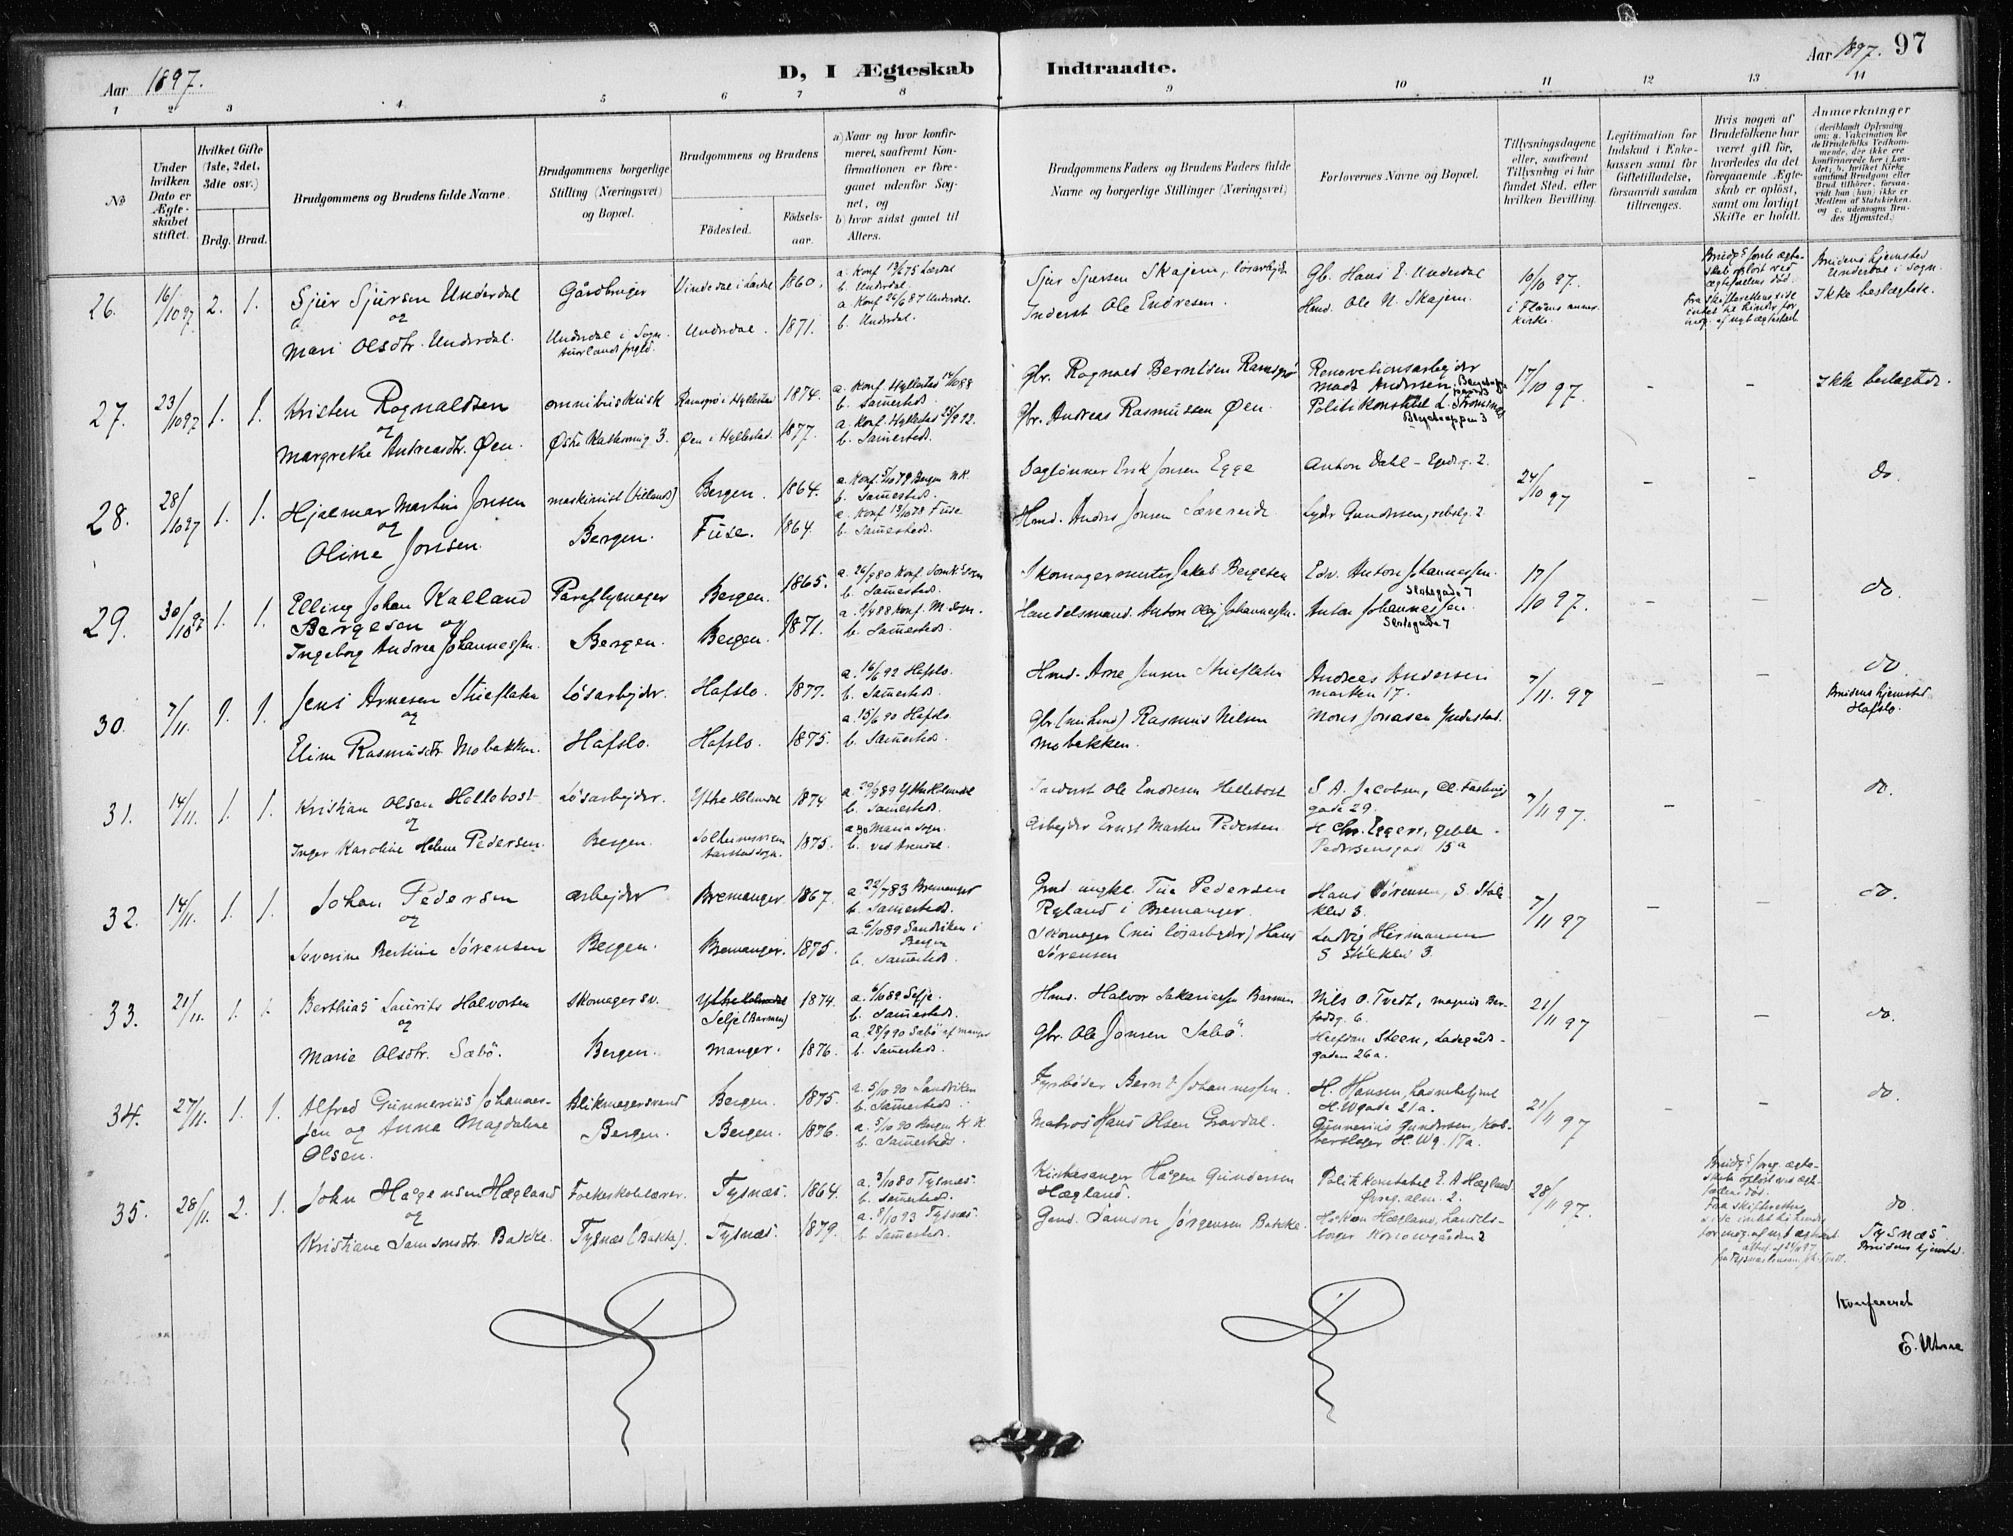 Aar 1897.
D, I Ægteskab Indtraadte.
Aar 1897. 97
1 2 3 4 5 6 7 8 9 10 11 12 13 14
No
Under hvilken Dato er Ægteskabet stiftet.
Hvilket Gifte (1ste, 2det, 3dte osv.)
Brdg. Brud.
Brudgommens og Brudens fulde Navne.
Brudgommens borgerlige Stilling (Næringsvei) og Bopæl.
Brudgommens og Brudens
Födested. Födselsaar.
a) Naar og hvor konfirmeret, saafremt Konfirmationen er foregaaet udenfor Sognet, og
b) hvor sidst gaaet til Alters.
Brudgommens Faders og Brudens Faders fulde Navne og borgerlige Stillinger (Næringsvei)
Forlovernes Navne og Bopæl.
Tillysningsdagene eller, saafremt Tillysning ei har fundet Sted, efter hvilken Bevilling.
Legitimation for Indskud i Enkekassen samt for Giftetilladelse, forsaavidt saadan tiltrænges.
Hvis nogen af Brudefolkene har været gift för, hvorledes da det foregaaende Ægteskab er oplöst, samt om lovligt Skifte er holdt.
Anmærkninger
(deriblandt Oplysning om: a. Vakcination for de Brudefolks Vedkommende, der ikke ere konfirmerede her i Landet; b. hvilket Kirkesamfund Brudgom eller Brud tilhörer, forsaavidt han (hun) ikke er Medlem af Statskirken, og c. udensogns Brudes Hjemsted.)
26. 16/10 97 2. 1. Sjur Sjursen Underdal
og
Mari Olsdtr. Underdal.
Gårdbruger
Underdal i Sogn
Aurlands prgld.
1860.
Underdal. 1871.
a. Konf 13/6 75 Lærdal
b. Underdal.
a. Konf 26/6 87 Underdal.
b. Underdal.
Sjur Sjursen Skajem, løsarbejder
Inderst Ole Endresen.
Gb. Hans E. Underdal
Hmd. Ole N. Skajem.
10/10 97.
i Flåms annx.
kirke.
Brudg.s første ægteskab opløst ved ægtefællens død.
Fra skifterettens side intet til hinder for indg. af nyt ægteskab.
Brudens hjemsted
Underdal i Sogn.
Ikke beslægtede.
27. 23/10 97 1. 1. Kristen Rognaldsen
og
Margrethe Andreasdtr. Øen.
omnibuskusk
Østre Kalkenvig 3.
Ramsgrø i Hyllestad 1874.
Øen i Hyllestad. 1877.
a. Konf. Hyllestad 14/10 88
b. Sammesteds.
a. Konf. Hyllestad 25/9 92.
b. Sammesteds.
Gbr. Rognald Berntsen Ramsgrø
Gbr. Andreas Rasmussen Øen.
Renovationsarbejder
Mads Andersen,
Politikonstabel L. Strømsnes
17/10 97.
- -
Ikke beslægtede.
28. 28/10 97 1. 1. Hjalmar Martin Jonsen
og
Oline Jonsen.
maskinist
Bergen.
Bergen. 1864.
Fuse. 1864.
a. Konf. 5/10 79 Bergen N.K.
b. Sammesteds.
a. Konf 13/10 78 Fuse
b. Sammesteds.
Daglønner Erik Jonsen Egge
Hmd. Anders Jonsen Sævereide
Anton Dahl - 2.
Lyder Gundersen, 2
24/10 97
- -
do.
29. 30/10 97 1. 1. Elling Johan Kalland
Bergesen og
Ingeborg Andrea Johannessen.
Paraplymager
Bergen.
Bergen. 1865.
Bergen. 1871.
a. 26/9 80 Konf. Domk. Sogn
b. Sammesteds.
a. 8/4 88 Konf. M. Sogn.
b. Sammesteds.
Skomagermester Jakob Bergesen
Handelsmand. Anton Olaj Johannessen.
Edv. Anton Johannessen.
Slotsgade 7
Anton Johannessen.
Slotsgade 7
17/10 97.
- -
do.
30. 7/11. 1. 1. Jens Arnesen Stieflaten
og
Eline Rasmusdtr. Mobakken.
Løsarbejder.
Hafslo.
Hafslo. 1877.
Hafslo. 1875.
a. 16/6 92 Hafslo.
b. Sammesteds.
a. 15/6 90 Hafslo.
b. Sammesteds.
Hmd. Arne Jensen Stieflaten
Gbr. Rasmus Nilsen
Mobakken.
Andreas Andersen
Marken 17.
Mons Jonasen Indestad.
7/11. 97
- -
do
Brudens hjemsted
Hafslo.
31. 14/11. 1. 1. Kristian Olsen Hellebost
og
Inger Karoline Helene Pedersen.
Løsarbejder.
Bergen.
Ytre Holmedal 1874
Solheimsviken
Aarstad sogn. 1875.
a. 29/9 89 Ytre Holmedal
b. Sammesteds.
a. 90 Maria sogn.
b. ved Arendal.
Inderst Ole Endresen Hellebost
Arbejder Ernst Martin Pedersen
S. A. Jacobsen,
gade 29.
H. Chr. Eggers, Geble
Pedersensgade 15a
7/11 97.
- -
do.
32. 14/11. 1. 1. Johan Pedersen
og
Severine Bertine Sørensen
arbejder
Bergen.
Bremanger 1867.
Bremanger. 1875.
a. 22/7 83 Bremanger
b. Sammesteds.
a. 6/10 89 Sandviken i
Bergen
b. Sammesteds.
Gmd. ungkl. Tue Pedersen
Ryland i Bremanger.
Skomager (nu løsarbejder) Hans
Sørensen
Hans Sørensen, S. Stølklev 3.
Ludvig Hermansen
S. Stølklev 3.
7/11 97
- -
do.
33. 21/11. 1. 1. Berthias Laurits Halvorsen
og
Marie Olsdtr. Sæbø.
Skomagersv.
Bergen.
Ytre Holmedal
Selje (Barmen) 1874.
Manger. 1876.
a. 6/10 89 Selje.
b. Sammesteds.
a. 28/9 90 Sæbø af Manger
b. Sammesteds.
Hmd. Halvor Sakariassen Barmen
Gbr. Ole Jonsen Sæbø.
Nils O. Tvedt, Magnus Barfodsg. 6.
Halfdan Steen, Ladegårdsgaden 26a.
21/11 97
- -
do.
34. 27/11. 1. 1. Alfred Gunnerius Johannessen og Anna Magdalene
Olsen.
Blikmagersvend
Bergen.
Bergen. 1875.
Bergen. 1876.
a. 5/10 90 Sandviken
b. Sammesteds
a. 5/10 90 Bergen K.K.
b. Sammesteds.
Fyrbøder Bernt Johannessen.
Matros Hans Olsen Gravdal.
H. Hansen, havnebetjent
H.W gade 21a.
Gunnerius Gundersen, Kobberslager H. Wg. 17a.
21/11 97
- -
do.
35. 28/11. 2. 1. John Hågensen Hægland
og
Kristiane Samsonsdtr. Bakke.
Folkeskolelærer.
Tysnæs (Bakke).
Tysnæs. 1864.
Tysnæs. 1879.
a. 3/10 80 Tysnæs.
b. Sammesteds.
a. 8/10 93 Tysnæs.
b. Sammesteds.
Kirkesanger Hågen Gundersen
Hægland.
Gmd. Samson Jørgensen Bakke.
Politikonstabel E. A. Hægland
Øvreg. alm. 2.
Håkon Hægland, handelsborger
28/11 97.
Brudg.s foreg. ægteskab opløst ved ægtefællens død.
Fra skifterettens side intet til hinder for indg. af nyt ægteskab.
do.
Tysnæs.
Brudens hjemsted.
Konfereret
E. Utne